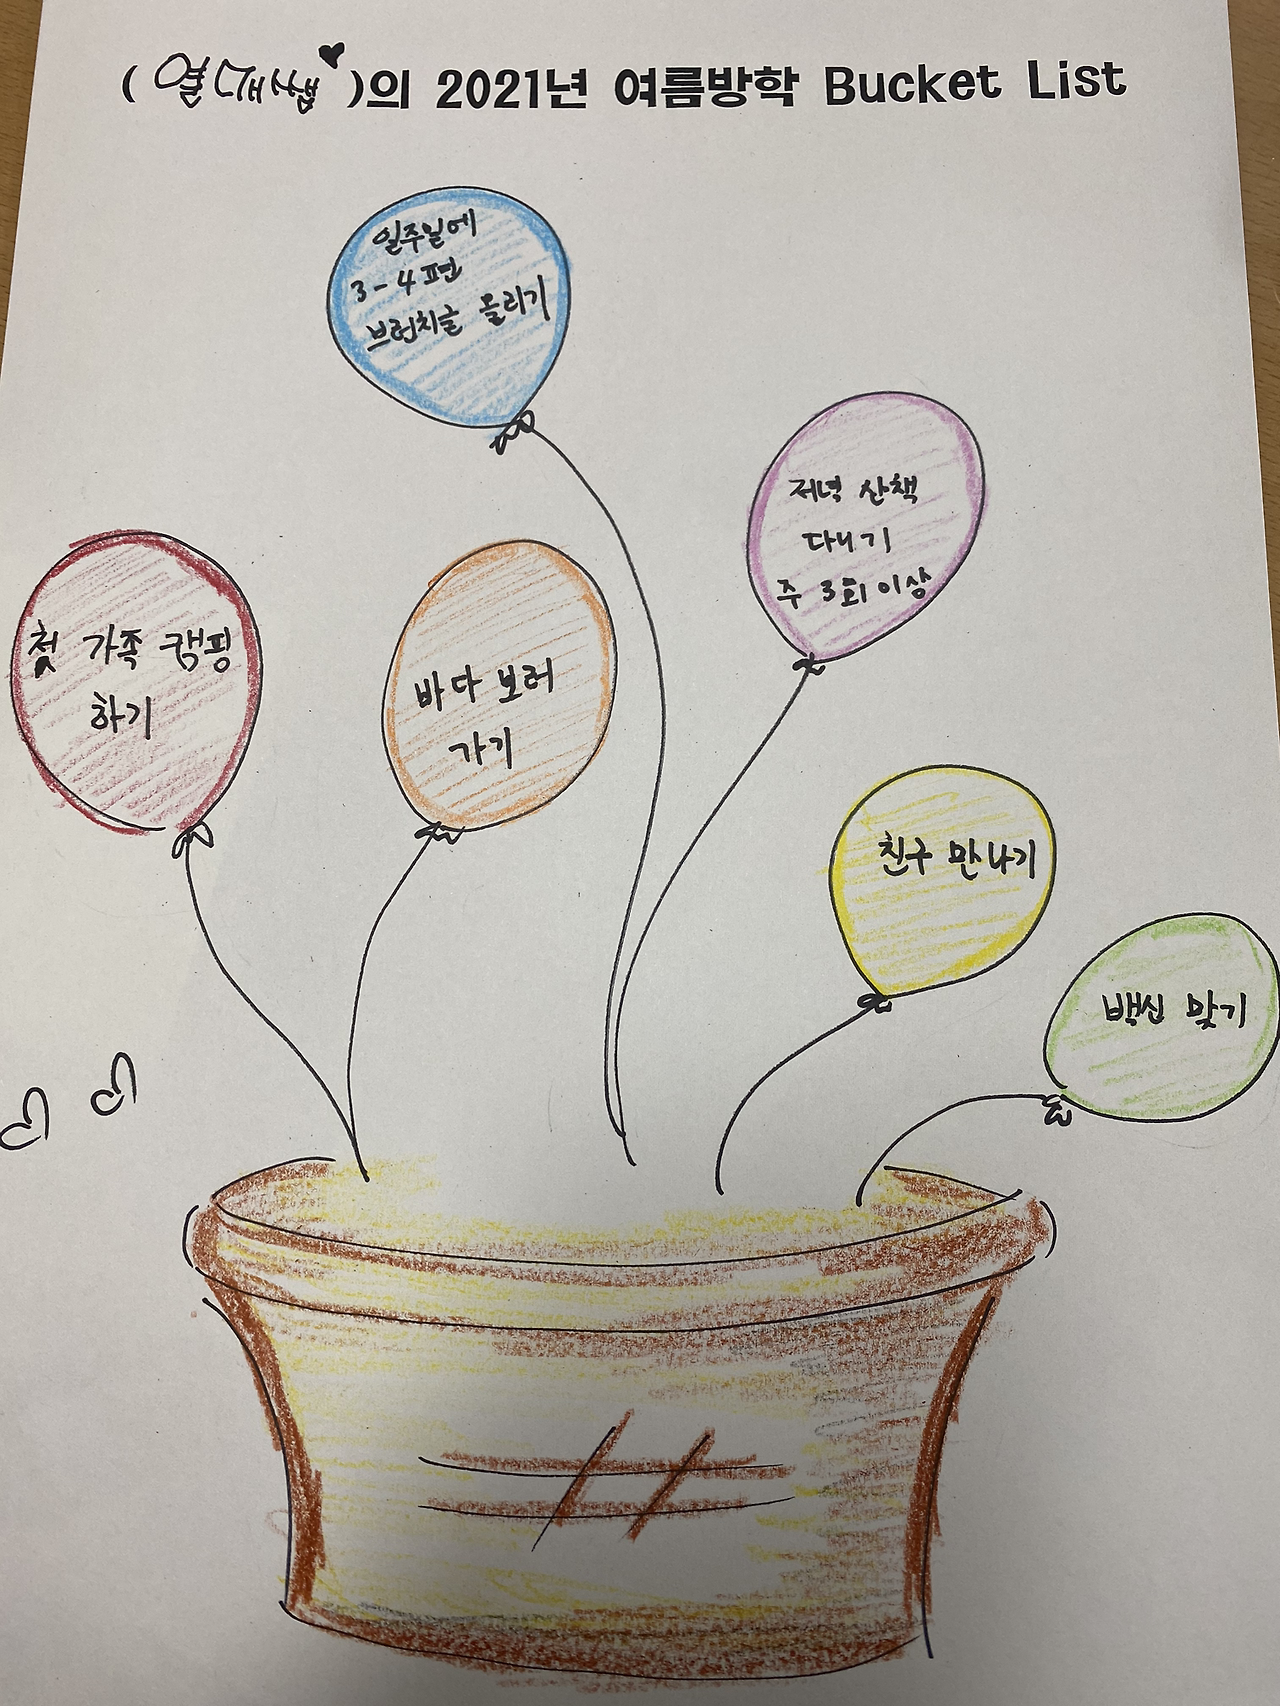 (열매쌤)의 2021년 여름방학 Bucket List
일주일에
3-4편
브런치글 올리기
저녁 산책
다니기
주 3회 이상
첫 가족 캠핑
하기
바다 보러
가기
친구 만나기
백신 맞기